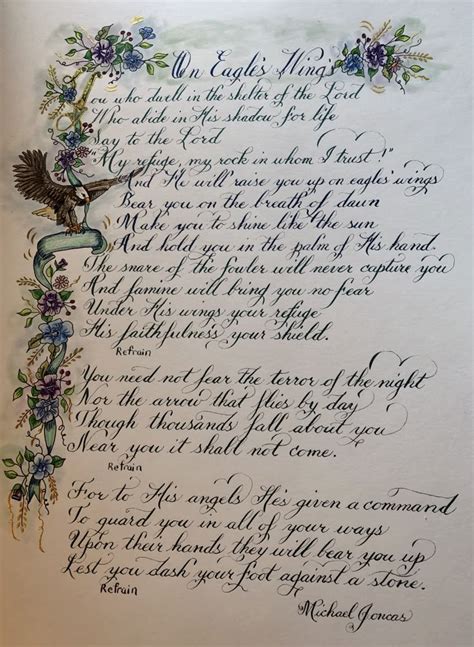 On Eagle's Wings
ou who dwell in the shelter of the Lord
Who abide in His shadow for life
Say to the Lord
"My refuge, my rock in whom I trust!"
And He will raise you up on eagles' wings
Bear you on the breath of dawn
Make you to shine like the sun
And hold you in the palm of His hand.
The snare of the fowler will never capture you
And famine will bring you no fear
Under His wings your refuge
His faithfulness your shield.
Refrain
You need not fear the terror of the night
Nor the arrow that flies by day
Though thousands fall about you
Near you it shall not come.
Refrain
For to His angels He's given a command
To guard you in all of your ways
Upon their hands they will bear you up
Lest you dash your foot against a stone.
Refrain
Michael Joncas